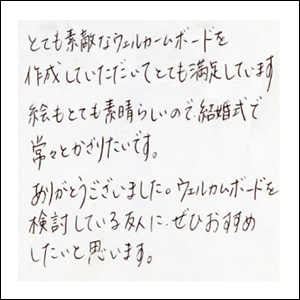 とても素敵なウェルカームボードを
作成していただいてとても満足しています
絵もとても素晴らしいので、結婚式で
常々とかざりたいです。
ありがとうございました。ウェルカムボードを
検討している友人に、ぜひおすすめ
したいと思います。